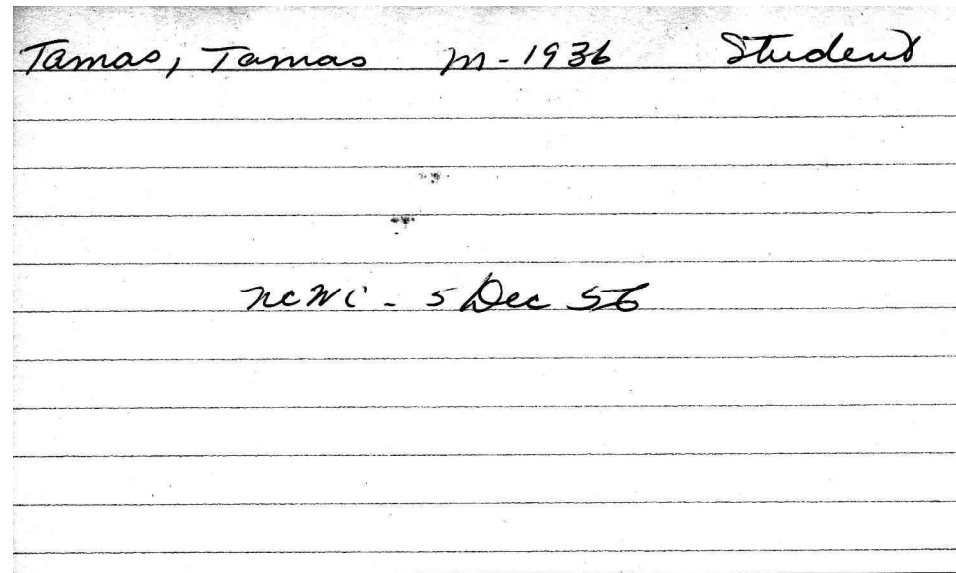 Tamas, Tamas m-1936 Student
NCWC - 5 Dec 56